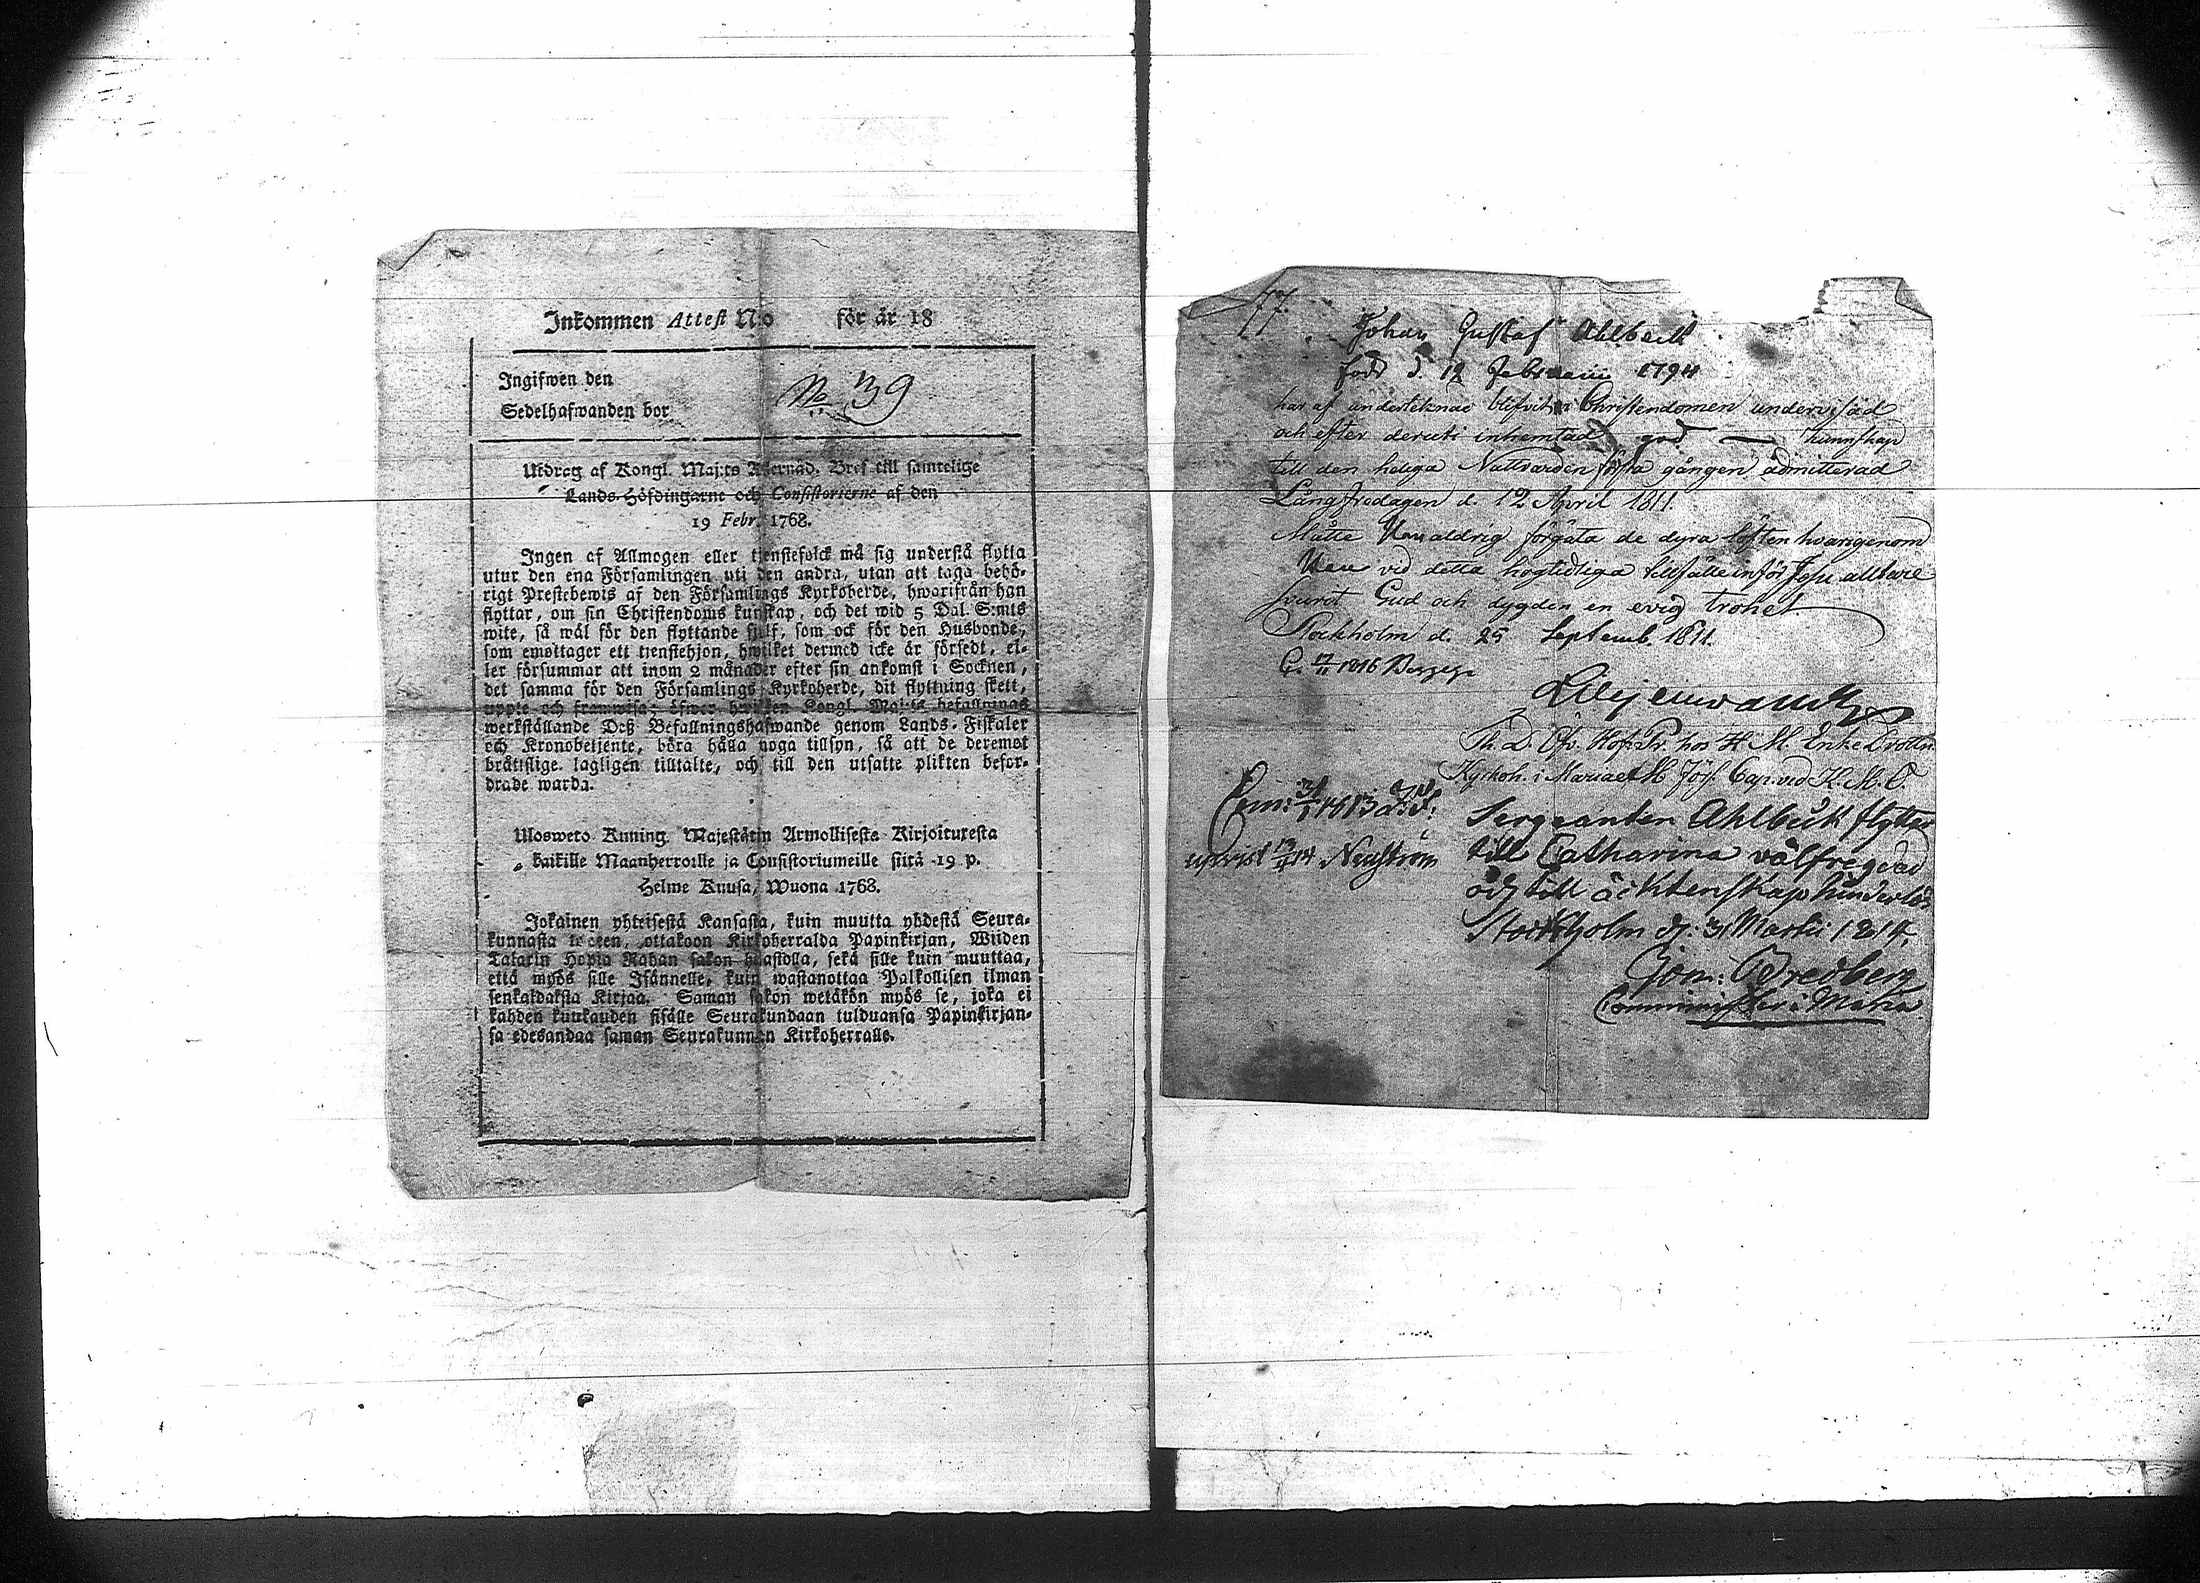 Inkommen Attest N:o för år 18
Ingifwen den
Sedelhafwanden bor
No 39
Utdrag af Kongl. Maj:ts Åternåd. Bref till samtelige
Lands-Höfdingarne och Consistorierne af den
19 Febr. 1768.
Ingen af Allmogen eller tjenstefolck må sig understå flytta
utur den ena Församlingen uti den andra, utan att taga behö-
rigt Prestebewis af den Församlings Kyrkoherde, hwarifrån han
flyttar, om sin Christendoms kunskap, och det wid 5 Dal. S:mts
wite, så wäl för den flyttande sjelf, som ock för den Husbonde,
som emottager ett tienstehjon, hwilket dermed icke är försedt, el-
ler försummar att inom 2 månader efter sin ankomst i Socknen,
det samma för den Församlings Kyrkoherde, dit flyttning skett,
uppte och framwisa; öfwer hwilken Kongl. Maj:ts befallnings
werkställande Deß Befallningshafwande genom Lands-Fiskaler
och Kronobetjente, böra hålla noga tillsyn, så att de deremot
bråttslige lagligen tilltalte, och till den utsatte plikten befor-
drade warda.
Ulosweto Kuning. Majestätin Armollisesta Kirjoituresta
kaikille Maanherroille ja Consistoriumeille siitä 19 p.
Helme Kuusa, Wuona 1768.
Jokainen yhteisestä Kansasta, kuin muutta yhdestä Seura-
kunnasta toiseen, ottakoon Kirkoherralda Papinkirjan, Wiiden
Talarin Hopia Rahan sakon haastolla, sekä sille kuin muuttaa,
että myös sille Isännelle, kuin wastanottaa Palkollisen ilman
senkaldaksta Kirjaa. Saman sakon wetäkön myös se, joka ei
kahden kuukauden sisälle Seurakundaan tulduansa Papinkirjan-
sa edesandaa saman Seurakunnan Kirkoherralle.
77.
Johan Gustaf Ahlbeck
född d. 12 Februarii 1794
har af undertecknad blifvit i Christendomen undervisad
och efter deruti inhemtad god kunnskap
till den heliga Nattvarden första gången admitterad
Långfredagen d. 12 April 1811.
Måtte Han aldrig förgäta de dyra löften hvarigenom
Han vid detta högtidliga tillfälle inför Jesu altare
svurit Gud och dygden en evig trohet
Stockholm d. 25 Septemb. 1811.
1816
Th. D. Öfv. Hof Pr. hos H. M. Enke Drottn.
Kyrkoh. i Mariae M. Förs. Cap. vid K. M. O.
1813
Sergeanten Ahlbeck flyttar
till Catharina välfregdad
och till äcktenskap hinderlös
Stockholm d. 31 Martii 1814.
Bredberg
Comminister i Maria
Nyström